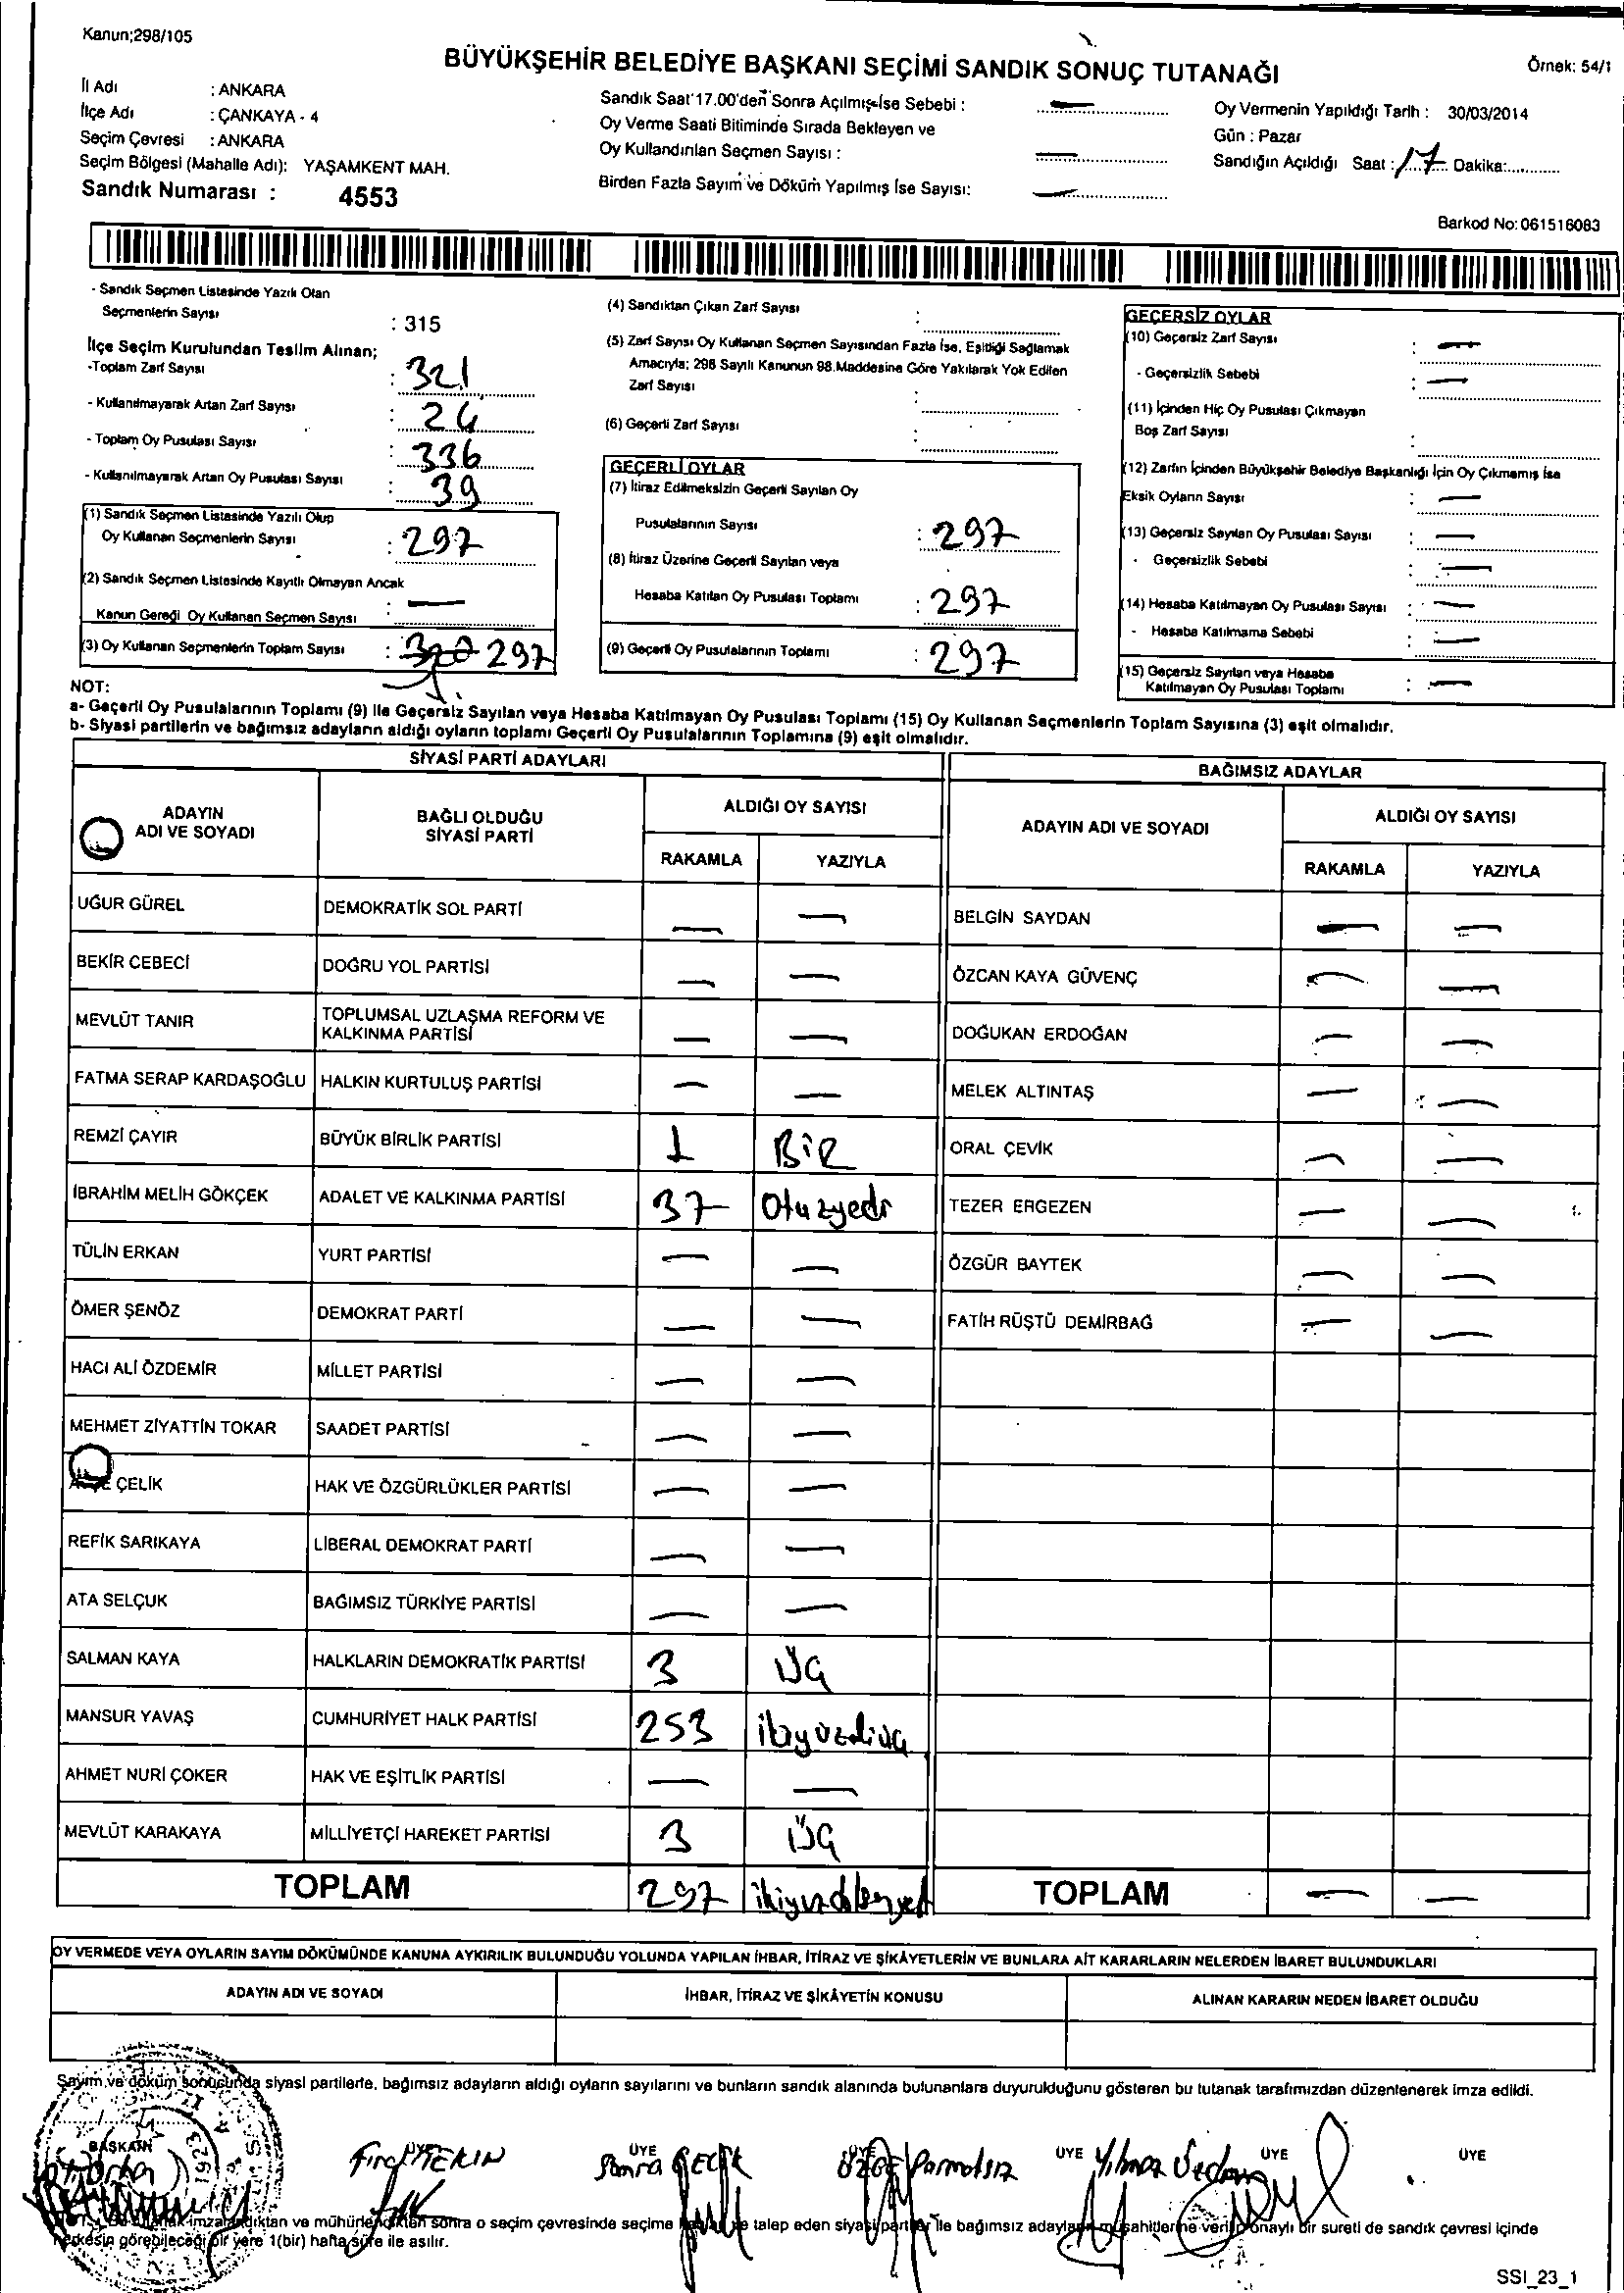 Kanun;298/105
BÜYÜKŞEHİR BELEDİYE BAŞKANI SEÇİMİ SANDIK SONUÇ TUTANAĞI
Örnek: 54/1
İl Adı : ANKARA
İlçe Adı : ÇANKAYA - 4
Seçim Çevresi : ANKARA
Seçim Bölgesi (Mahalle Adı): YAŞAMKENT MAH.
Sandık Numarası : 4553
Sandık Saat 17.00'den Sonra Açılmış İse Sebebi : —
Oy Verme Saati Bitiminde Sırada Bekleyen ve
Oy Kullandırılan Seçmen Sayısı : —
Birden Fazla Sayım ve Döküm Yapılmış İse Sayısı: —
Oy Vermenin Yapıldığı Tarih : 30/03/2014
Gün : Pazar
Sandığın Açıldığı Saat : 17 Dakika:............
Barkod No: 061516083
- Sandık Seçmen Listesinde Yazılı Olan
Seçmenlerin Sayısı : 315
İlçe Seçim Kurulundan Teslim Alınan;
-Toplam Zarf Sayısı : 321
- Kullanılmayarak Artan Zarf Sayısı : 24
- Toplam Oy Pusulası Sayısı : 336
- Kullanılmayarak Artan Oy Pusulası Sayısı : 39
(1) Sandık Seçmen Listesinde Yazılı Olup
Oy Kullanan Seçmenlerin Sayısı : 297
(2) Sandık Seçmen Listesinde Kayıtlı Olmayan Ancak
Kanun Gereği Oy Kullanan Seçmen Sayısı : —
(3) Oy Kullanan Seçmenlerin Toplam Sayısı : 297
(4) Sandıktan Çıkan Zarf Sayısı :
(5) Zarf Sayısı Oy Kullanan Seçmen Sayısından Fazla İse, Eşitliği Sağlamak
Amacıyla; 298 Sayılı Kanunun 98.Maddesine Göre Yakılarak Yok Edilen
Zarf Sayısı :
(6) Geçerli Zarf Sayısı :
GEÇERLİ OYLAR
(7) İtiraz Edilmeksizin Geçerli Sayılan Oy
Pusulalarının Sayısı : 297
(8) İtiraz Üzerine Geçerli Sayılan veya
Hesaba Katılan Oy Pusulası Toplamı : 297
(9) Geçerli Oy Pusulalarının Toplamı : 297
GEÇERSİZ OYLAR
(10) Geçersiz Zarf Sayısı : —
- Geçersizlik Sebebi : —
(11) İçinden Hiç Oy Pusulası Çıkmayan
Boş Zarf Sayısı :
(12) Zarfın İçinden Büyükşehir Belediye Başkanlığı İçin Oy Çıkmamış İse
Eksik Oyların Sayısı : —
(13) Geçersiz Sayılan Oy Pusulası Sayısı : —
- Geçersizlik Sebebi : —
(14) Hesaba Katılmayan Oy Pusulası Sayısı : —
- Hesaba Katılmama Sebebi : —
(15) Geçersiz Sayılan veya Hesaba
Katılmayan Oy Pusulası Toplamı : —
NOT:
a- Geçerli Oy Pusulalarının Toplamı (9) ile Geçersiz Sayılan veya Hesaba Katılmayan Oy Pusulası Toplamı (15) Oy Kullanan Seçmenlerin Toplam Sayısına (3) eşit olmalıdır.
b- Siyasi partilerin ve bağımsız adayların aldığı oyların toplamı Geçerli Oy Pusulalarının Toplamına (9) eşit olmalıdır.
SİYASİ PARTİ ADAYLARI
ADAYIN ADI VE SOYADI
BAĞLI OLDUĞU SİYASİ PARTİ
ALDIĞI OY SAYISI
RAKAMLA YAZIYLA
UĞUR GÜREL DEMOKRATİK SOL PARTİ — —
BEKİR CEBECİ DOĞRU YOL PARTİSİ — —
MEVLÜT TANIR TOPLUMSAL UZLAŞMA REFORM VE KALKINMA PARTİSİ — —
FATMA SERAP KARDAŞOĞLU HALKIN KURTULUŞ PARTİSİ — —
REMZİ ÇAYIR BÜYÜK BİRLİK PARTİSİ 1 BİR
İBRAHİM MELİH GÖKÇEK ADALET VE KALKINMA PARTİSİ 37 Otuzyedi
TÜLİN ERKAN YURT PARTİSİ — —
ÖMER ŞENÖZ DEMOKRAT PARTİ — —
HACI ALİ ÖZDEMİR MİLLET PARTİSİ — —
MEHMET ZİYATTİN TOKAR SAADET PARTİSİ — —
ÇELİK HAK VE ÖZGÜRLÜKLER PARTİSİ — —
REFİK SARIKAYA LİBERAL DEMOKRAT PARTİ — —
ATA SELÇUK BAĞIMSIZ TÜRKİYE PARTİSİ — —
SALMAN KAYA HALKLARIN DEMOKRATİK PARTİSİ 3 ÜÇ
MANSUR YAVAŞ CUMHURİYET HALK PARTİSİ 253
AHMET NURİ ÇOKER HAK VE EŞİTLİK PARTİSİ — —
MEVLÜT KARAKAYA MİLLİYETÇİ HAREKET PARTİSİ 3 ÜÇ
TOPLAM 297
BAĞIMSIZ ADAYLAR
ADAYIN ADI VE SOYADI
ALDIĞI OY SAYISI
RAKAMLA YAZIYLA
BELGİN SAYDAN — —
ÖZCAN KAYA GÜVENÇ — —
DOĞUKAN ERDOĞAN — —
MELEK ALTINTAŞ — —
ORAL ÇEVİK — —
TEZER ERGEZEN — —
ÖZGÜR BAYTEK — —
FATİH RÜŞTÜ DEMİRBAĞ — —
TOPLAM — —
OY VERMEDE VEYA OYLARIN SAYIM DÖKÜMÜNDE KANUNA AYKIRILIK BULUNDUĞU YOLUNDA YAPILAN İHBAR, İTİRAZ VE ŞİKÂYETLERİN VE BUNLARA AİT KARARLARIN NELERDEN İBARET BULUNDUKLARI
ADAYIN ADI VE SOYADI
İHBAR, İTİRAZ VE ŞİKÂYETİN KONUSU
ALINAN KARARIN NEDEN İBARET OLDUĞU
Sayım ve döküm sonucunda siyasi partilerle, bağımsız adayların aldığı oyların sayılarını ve bunların sandık alanında bulunanlara duyurulduğunu gösteren bu tutanak tarafımızdan düzenlenerek imza edildi.
BAŞKAN ÜYE ÜYE ÜYE ÜYE ÜYE ÜYE
Fırat TEKİN
ÖZGE Parmaksız
Yılmaz
imzalandıktan ve mühürlendikten sonra o seçim çevresinde seçime talep eden siyasi partiler ile bağımsız adayların müşahitlerine verilip onaylı bir sureti de sandık çevresi içinde
herkesin görebileceği bir yere 1(bir) hafta süre ile asılır.
SSI_23_1